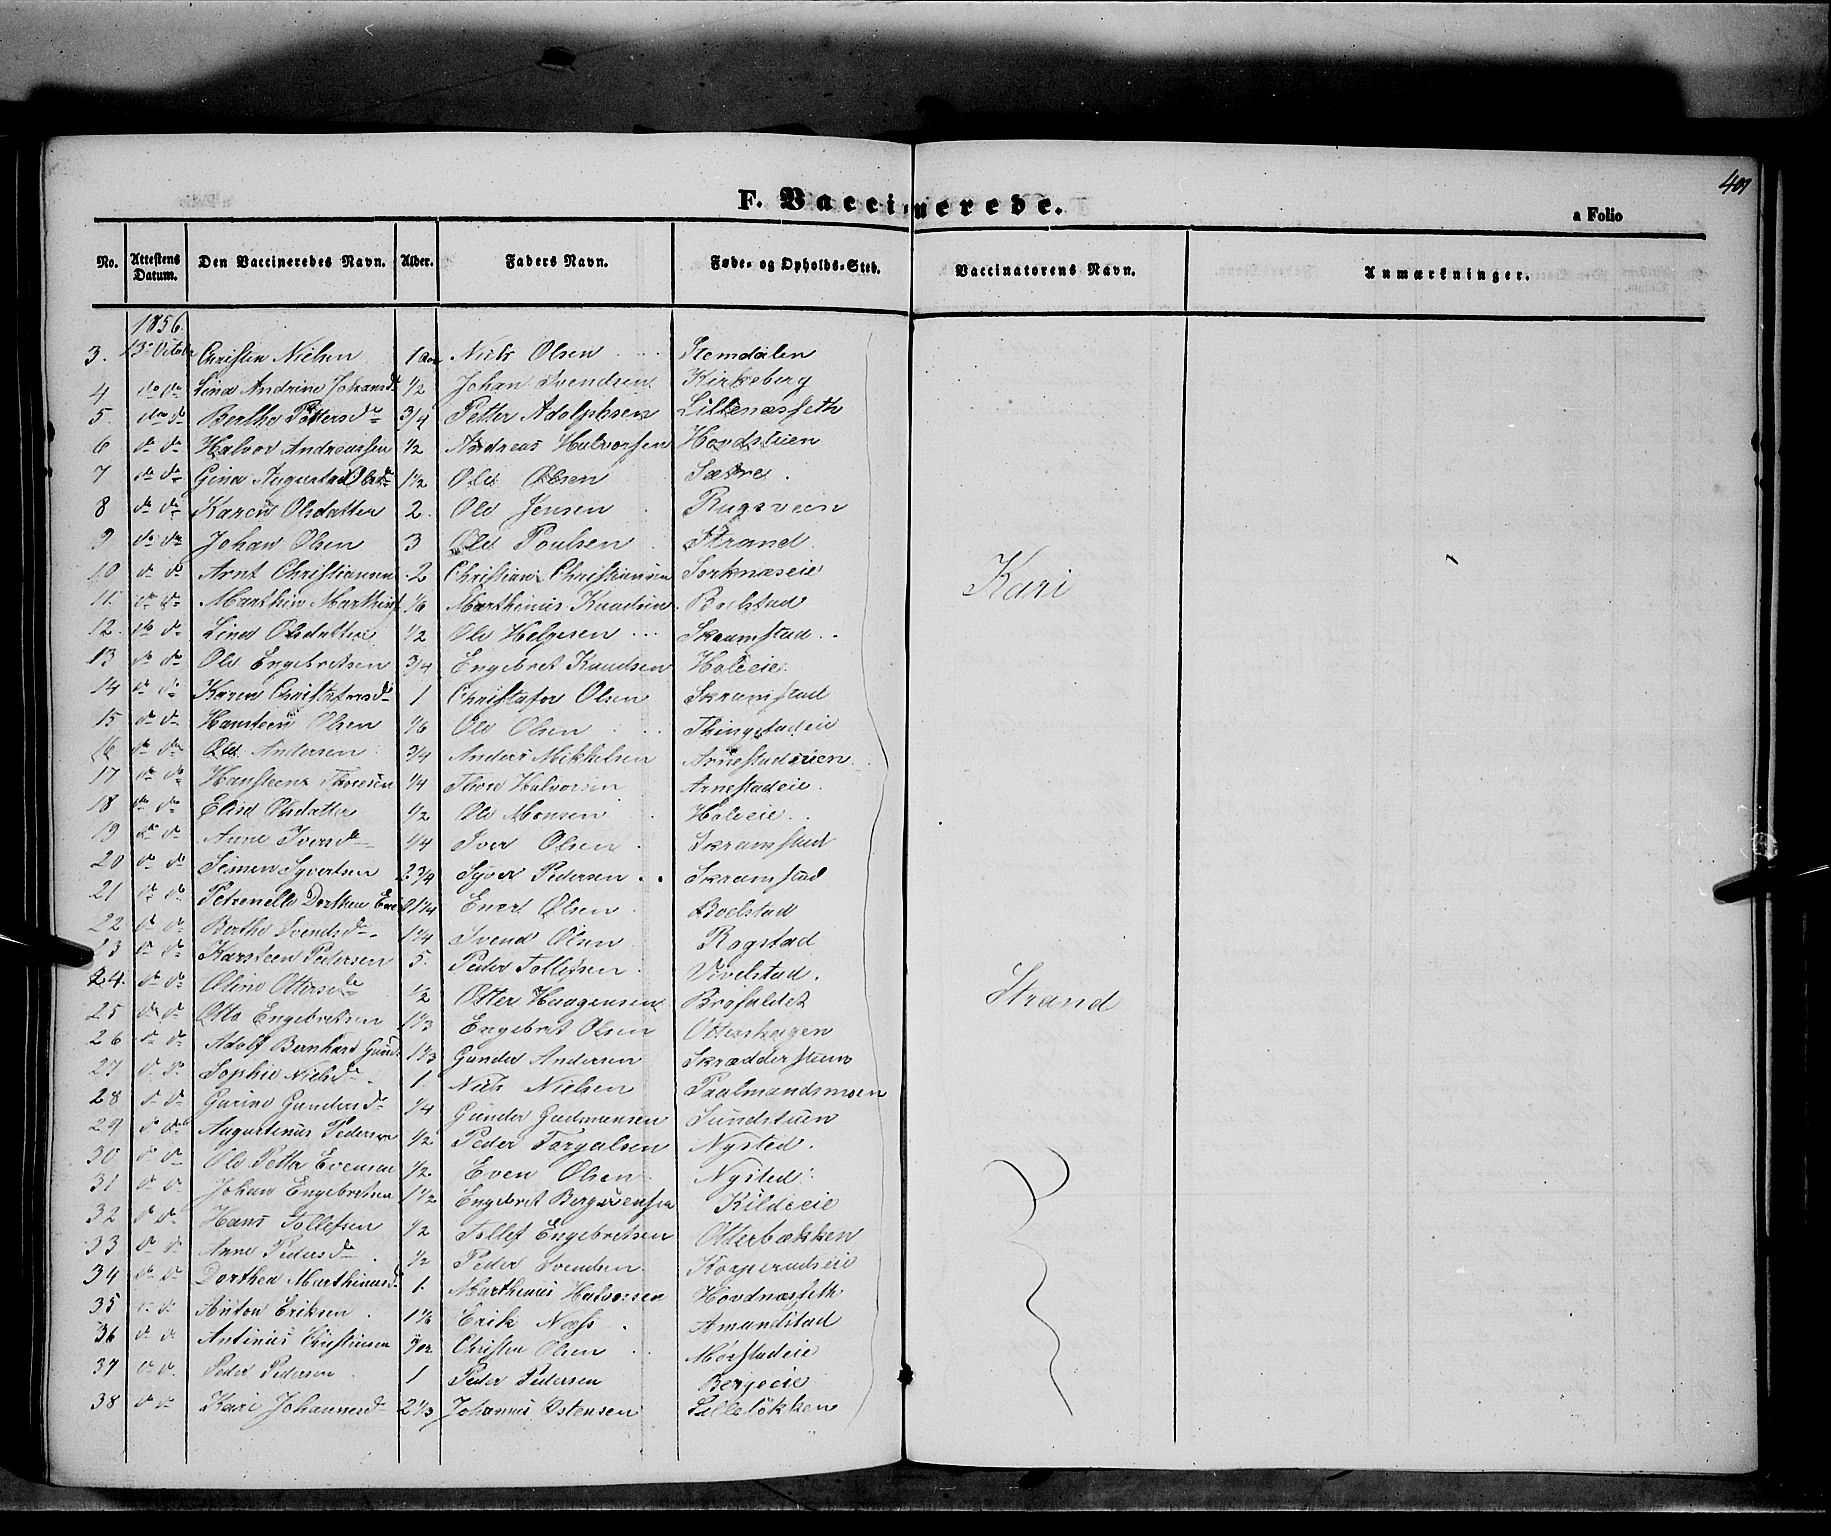 409
F. Vaccinerede.
a Folio
No. Attestens Datum. Den Vaccineredes Navn. Alder. Faders Navn. Føde- og Opholds-Sted. Vaccinatorens Navn. Anmærkninger.
1856
3. 13 Octobr Christen Nielsen 1 Niels Olsen Stemdalen
4 do do Lina Andrine Johansd 1/2 Johan Svendsen Kirkeberg
5. do do Berthe Pettersd 3/4 Petter Adolphsen Lillenæsseth
6 do do Halvor Andreassen 1/2 Andreas Halvorsen Hovdstuen
7 do do Gina Augusta Olsd 1 1/2 Ole Olsen Sætre.
8 do do Karen Olsdatter 2. Ole Jensen Rugsveen
9 do do Johan Olsen 3 Ole Poulsen Strand
10 do do Arnt Christiansen 2 Christian Christiansen Sorknæseie Kari
11. do do Marthin Marthins 1/6 Marthinus Knudsen Boelstad
12. do do Lina Olsdatter 1/2 Ole Helgesen Skramstad
13 do do Ole Engebretsen 3/4 Engebret Knudsen Holeeie
14 do do Karen Christofersd 1 Christofer Olsen Skramstad
15 do do Hansteen Olsen 1/6 Ole Olsen Thingstadeie
16 do do Ole Andersen 3/4 Anders Mikkelsen Arnestadstuen
17 do do Hansteen Thoresen 1/4 Thore Halvorsen Arnestadeie
18 do do Elise Olsdatter 1/2 Ole Monsen Holeeie
19 do do Anne Iversd 1/4 Iver Olsen Skramstad
20 do do Simen Syvertsen 2 3/4 Syver Pedersen Skramstad
21 do do Petronelle Dorthea 1 1/4 Evert Olsen Boelstad
22 do do Berthe Svendsd 1 1/4 Svend Olsen Rogstad
23 do do Karsteen Pedersen 5. Peder Tollefsen Vivelstad.
24. do do Oline Ottersd 1/2 Otter Haagensen Bröfaldet Strand
25 do do Otto Engebretsen 1 1/3 Engebret Olsen Otterskogen
26 do do Adolf Bernhard Gund 1 1/3 Gunder Andersen Skrædderstuen
27 do do Sophie Nielsd 1. Niels Nielsen Paalmandsmoen
28 do do Gurine Gundersd 1/4 Gunder Gudmunsen Sundstuen
29 do do Augustinus Pedersen 1/2 Peder Torgalsen Nysted.
30 do do Ole Petter Evensen 1/2. Even Olsen Nysted.
31 do do Johan Engebretsen 1 1/2 Engebret Bergersensen Kildeeie
32 do do Hans Tollefsen 1/2 Tollef Engebretsen Otterbækken
33 do do Anne Pedersd 1/2 Peder Svendsen Kasperudseie
34 do do Dorthea Marthinusd 1. Marthinus Halvorsen Hovdnæsseth
35 do do Anton Eriksen 1 1/6 Erik Næss Amundstad
36 do do Antinius Christensen Christen Olsen Mørstadeie
37 do do Peder Pedersen 1 Peder Pedersen Bergeeie
38 do do Kari Johannesd 2 1/3 Johannes Ostensen Lilleløkken